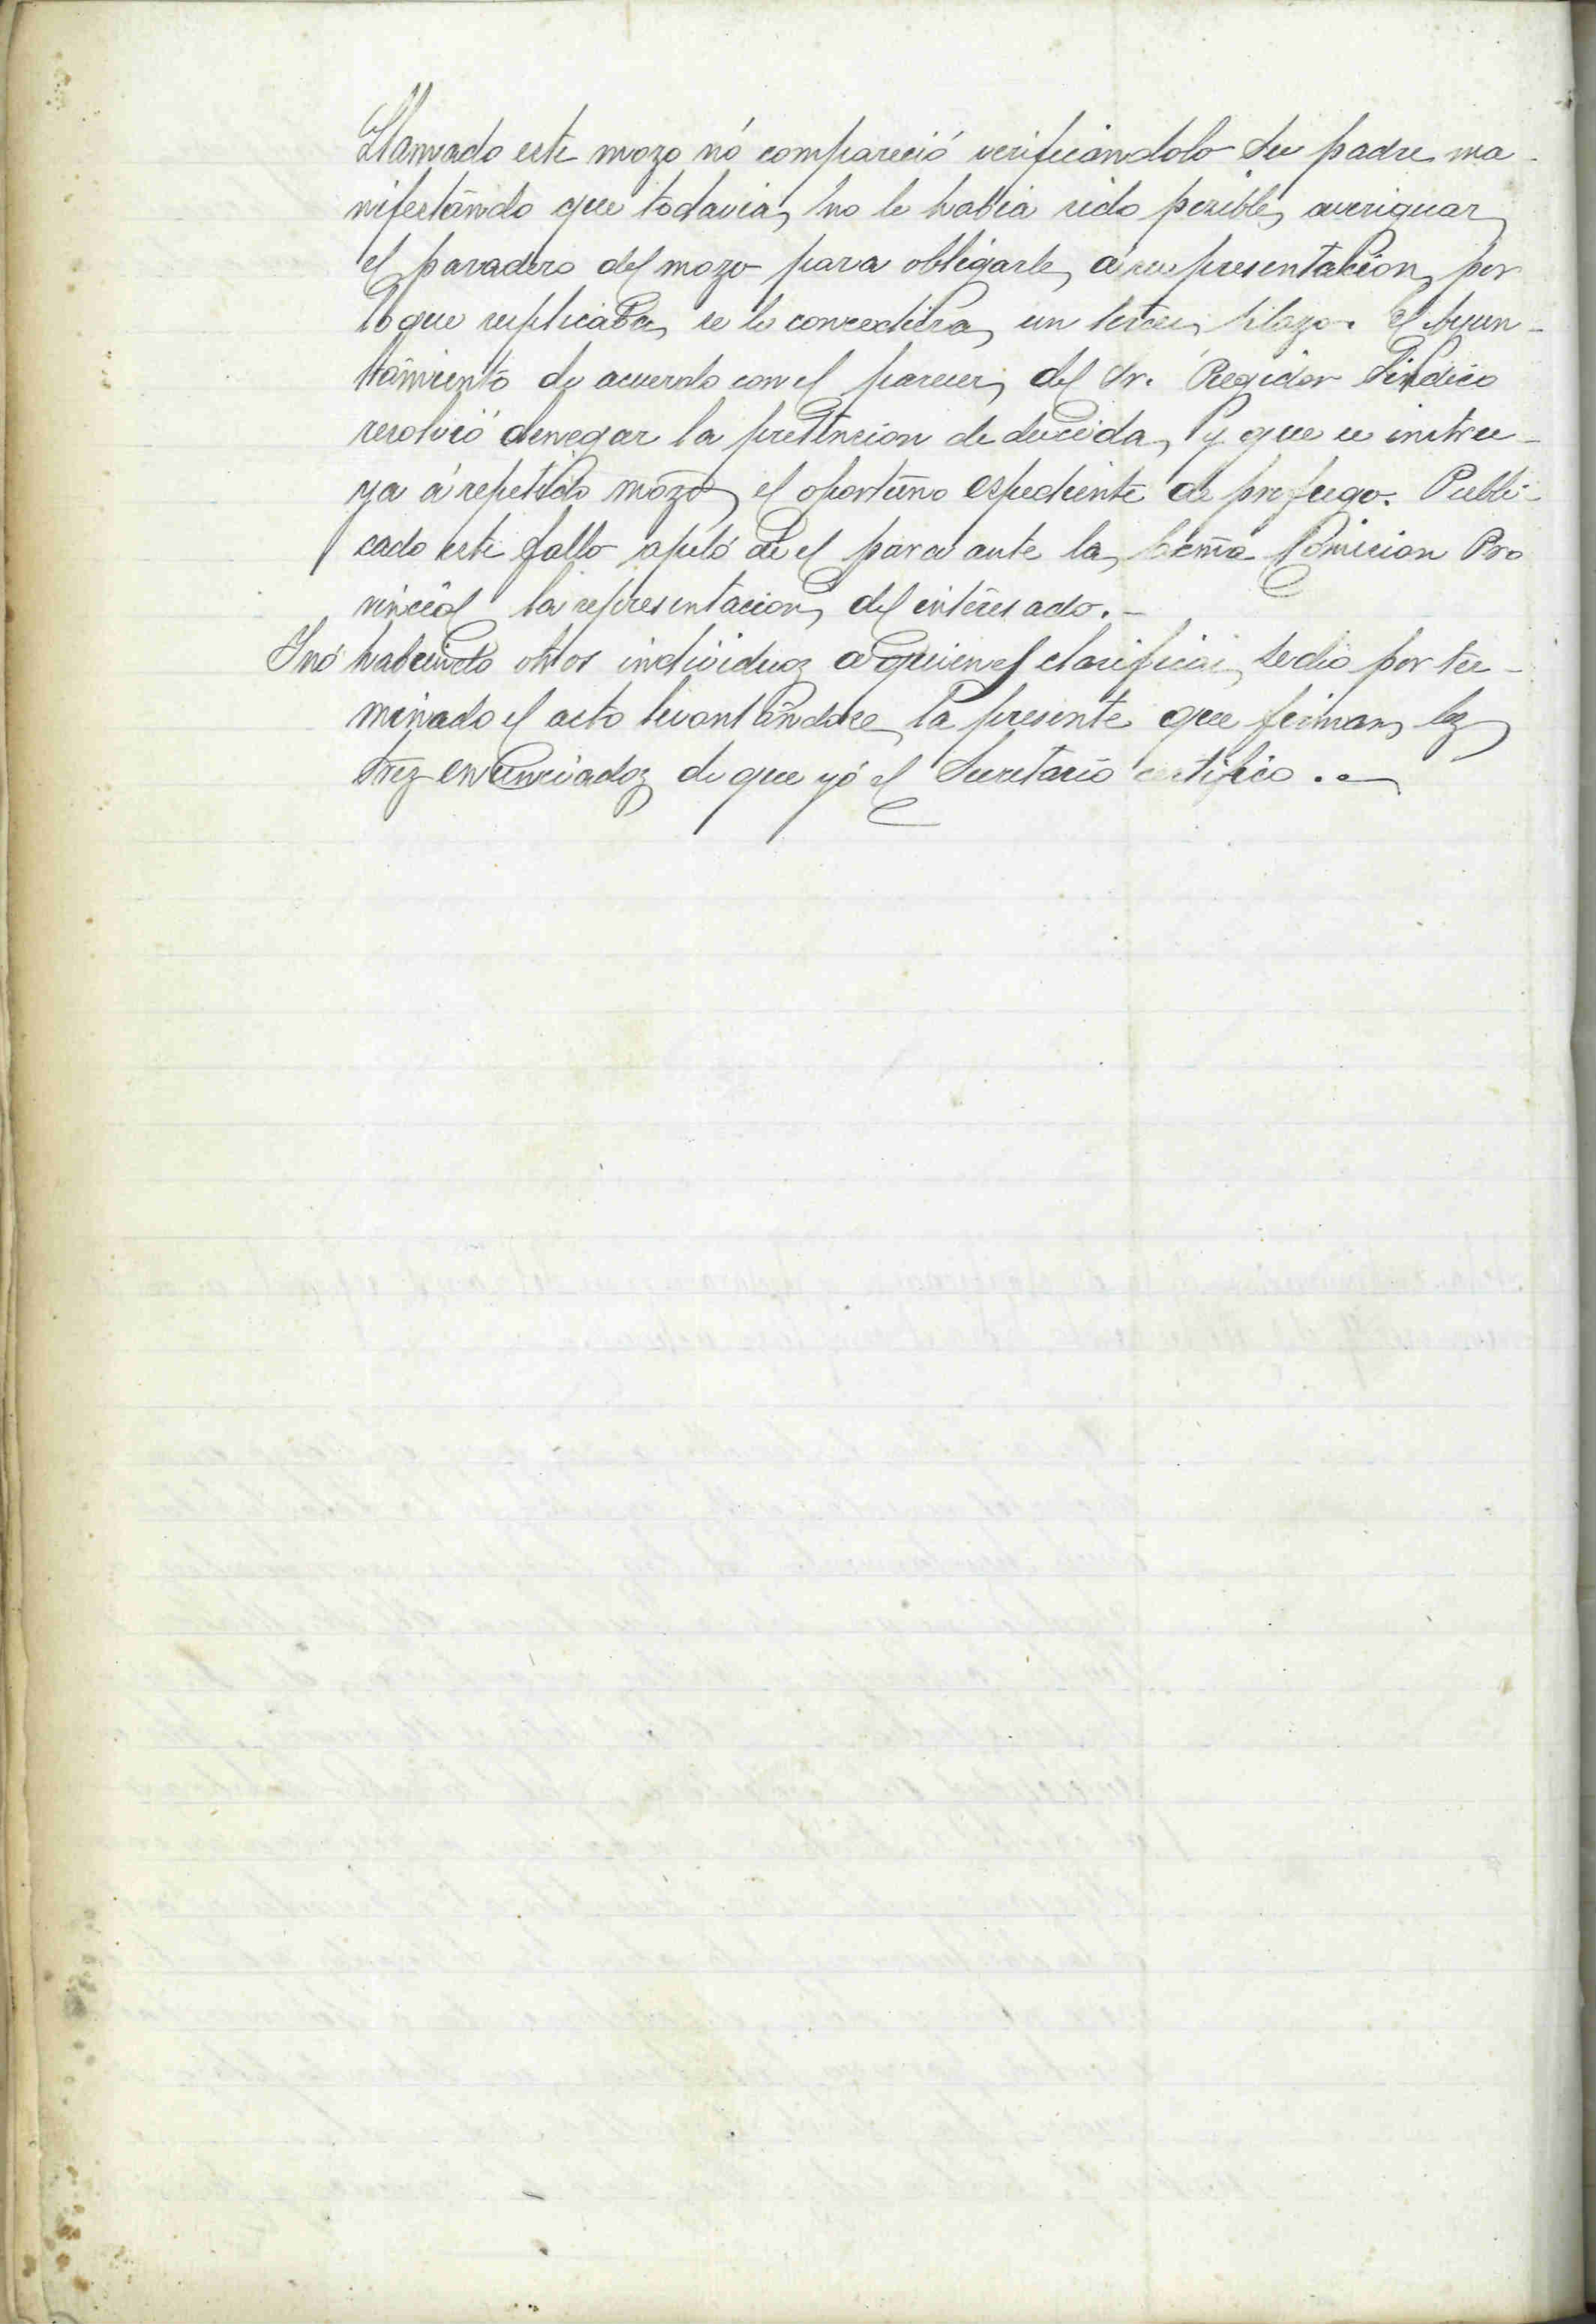 Llamado este mozo nó compareció verificándolo su padre ma-
nifestándo que todavia no le habia sido posible averiguar
el paradero del mozo para obligarle á su presentacion, por
lo que suplicaba se le concediera un tercer plazo. El Ayun-
tamiento de acuerdo con el parecer del Sr. Regidor Sindico
resolvió denegar la pretension deducida, y que se instru-
ya á repetido mozo el oportuno espediente de profugo. Publi-
cado este fallo apeló de el para ante la Comision Pro
vincial la representacion del interesado.-
Y nó habiendo otros individuos a quienes clasificar, se dió por ter-
minado el acto levantándose la presente que firman los
Sres enunciados de que yó el Secretario certifico.-